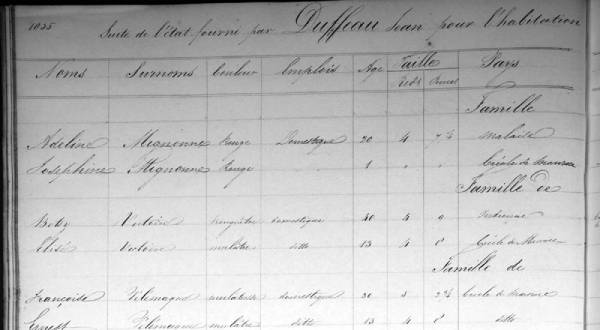 1025
Suite de l'état fourni par Duffeau Jean pour l'habitation
Noms Surnoms Couleur Emplois Age Taille Pays
Pieds Pouces
Famille
Adeline Mignonne rouge Domestique 20 4 malaise
Josephine Mignonne rouge 1 " " Créole de
Famille de
Victoire domestique 40 4
Elisé Victoire mulâtre ditto 13 4 8 Créole de Maurice
Famille de
Françoise Télémaque mulatresse domestique Créole de Maurice
Ernest Télémaque mulatre ditto 13 4 8 ditto